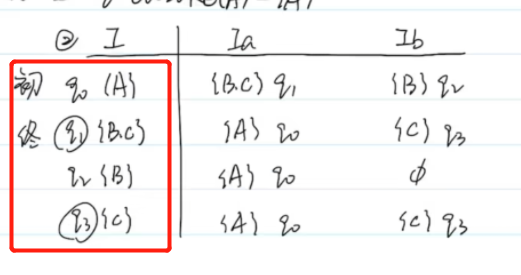 ② I Ia Ib
初 q₀ {A} {B.C} q₁ {B} q₂
终 q₁ {B.C} {A} q₀ {C} q₃
q₂ {B} {A} q₀ ϕ
q₃ {C} {A} q₀ {C} q₃